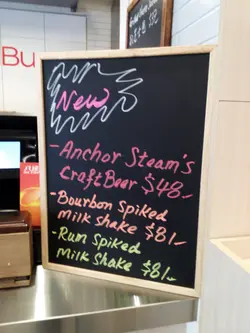 Bu
New
- Anchor Steam's
Craft Beer $48.-
- Bourbon Spiked
Milk shake $81.-
- Rum Spiked
Milk Shake $81.-